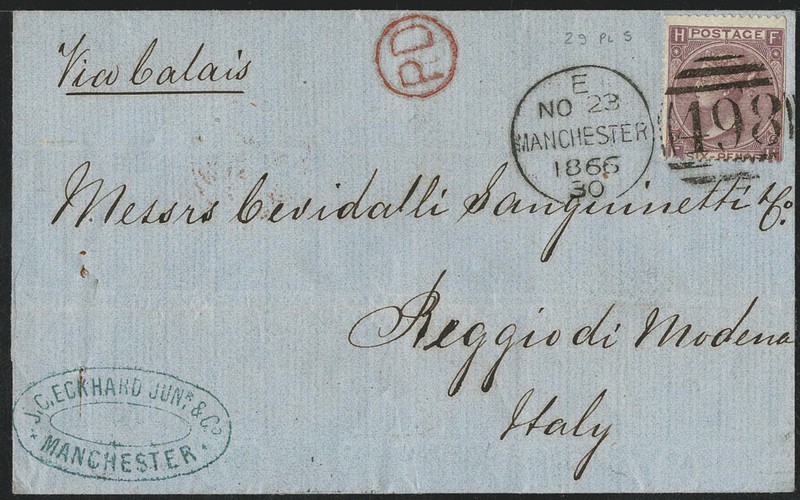 Via Calais
PD
29 PL 5
E
NO 23
MANCHESTER
1866
30
H POSTAGE F
498
SIX-PENCE
Messrs Cevidalli Sanguinetti & Co.
Reggio di Modena
Italy
J.C. ECKHARD JUNR. & CO.
MANCHESTER.